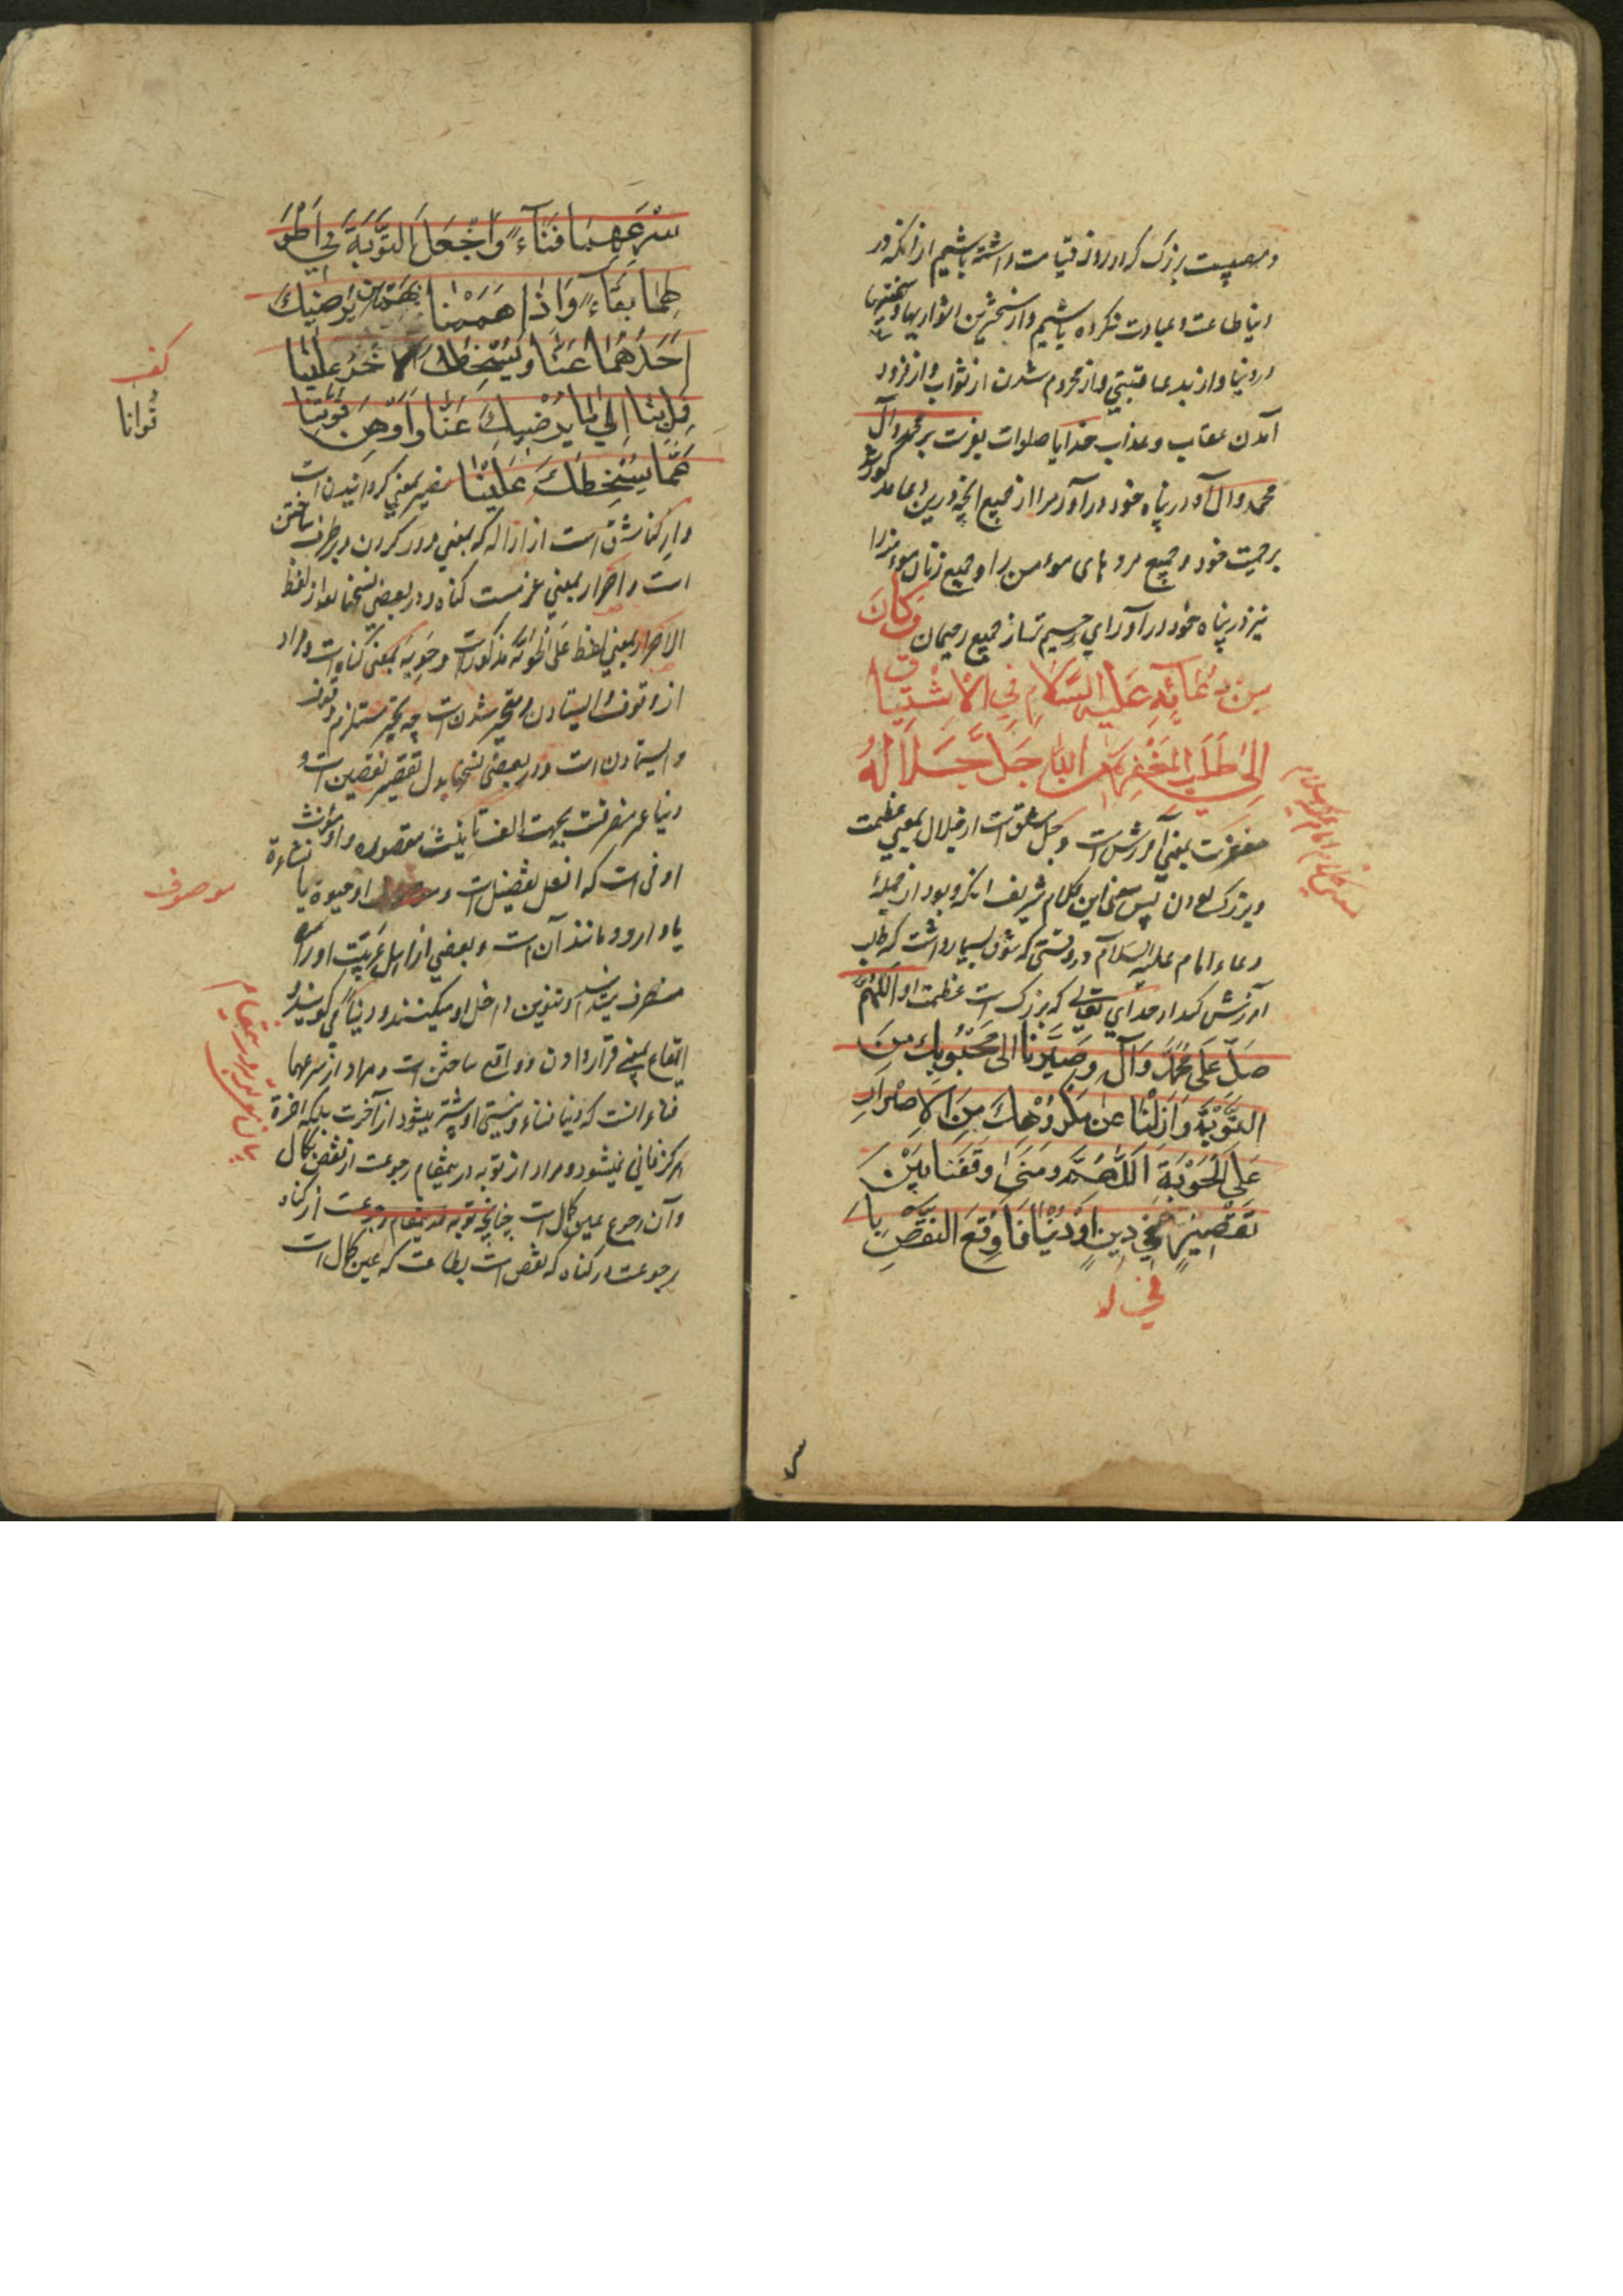 ومصیبت بزرگ که در روز قیامت داشته باشیم از آنکه در
دنیا طاعت و عبادت نکرده باشیم و از سخت‌ترین دشواریها و سختیها
در دنیا و از بدعاقبتی و از محروم شدن از ثواب و از فرود
آمدن عقاب و عذاب خدایا صلوات بفرست بر محمد و آل
محمد و آل او در پناه خود درآور مرا از جمیع آنچه درین دعا مذکور شد
برحمت خود و جمیع مردهای مؤمن را و جمیع زنان مؤمنه را
نیز در پناه خود درآور ای رحیم‌تر از جمیع رحیمان وَكَانَ
مِن دُعَائِهِ عَلَیهِ السَّلَامِ فِي الْاشْتِیَاقِ
اِلیٰ طَلَبِ المَغْفِرَةِ مِنَ اللهِ جَلَّ جَلَالُهُ
مغفرت بمعنی آمرزش است و جل مشتق است از جلال بمعنی عظمت
و بزرگ بودن پس معنی این کلام شریف آنکه و بود از جمله
دعاء امام علیه السلام در وقتی که شوق بسیار داشت که طلب
آمرزش کند از خدای تعالی که بزرگ است عظمت او اَللّٰهُمَّ
صَلِّ عَلَی مُحَمَّدٍ وَآلِهِ وَصَیِّرْنَا اِلیٰ مَحْبُوبِكَ مِنَ
التَّوْبَةِ وَاَزِلْنَا عَنْ مَكْرُوْهِكَ مِنَ الْاِصْرَارِ
عَلَی الْحَوْبَةِ اَللّٰهُمَّ وَمَتیٰ وَقَفْنَا بَیْنَ
نَقْصَیْنِ فِي دِینٍ اَوْ دُنْیَا فَاَوْقِعِ النَّقْصَ بِاَ
سْرَعِهِمَا فَنَاءً وَاجْعَلِ التَّوْبَةَ فِي اَطْوَ
لِهِمَا بَقَاءً وَاِذَا هَمَمْنَا بِهَمَّیْنِ یُرْضِیْكَ
اَحَدُهُمَا عَنَّا وَیُسْخِطُكَ الْاٰخَرُ عَلَیْنَا
فَمِلْ بِنَا اِلیٰ مَا یُرْضِیكَ عَنَّا وَاَوْهِنْ قُوَّتَنَا
عَمَّا یُسْخِطُكَ عَلَیْنَا صیر بمعنی گردانیدن است
کف
توانا
وازلنا مشتق است از ازاله که بمعنی دور کردن و برطرف ساختن
است و اصرار بمعنی عزمست گناه و در بعضی نسخها بعد از لفظ
الاصرار لفظ علی الحوبة مذکور است و حوبه بمعنی گناه است و مراد
از وقوف ایستادن و متحیر شدن است چه تحیر مستلزم وقوف
و ایستادن است و در بعضی نسخها بدل تقصیر نقصین است و
دنیا غیر منصرفست بجهت الف تأنیث مقصوره و او مؤنث
ادنی است که افعل تفضیل است و او حیوة یا نشاءة
موصوف
یا دار و مانند آن است و بعضی از اهل عربیت او را
منصرف میدانند و تنوین داخل او میکنند و دنیاً می‌گویند و
ایقاع بمعنی قرار دادن و واقع ساختن است و مراد از سرعهما
فناء آنست که دنیا فناء و نیستی او بیشتر میشود از آخرت بلکه آخرة
هرگز فانی نمیشود و مراد از توبه در ینمقام رجوعست از نقص بکمال
و آن رجوع عین کمال است چنانچه توبه در ینمقام رجوعست از گناه
رجوعست از گناه که نقص است بطاعت که عین کمال است